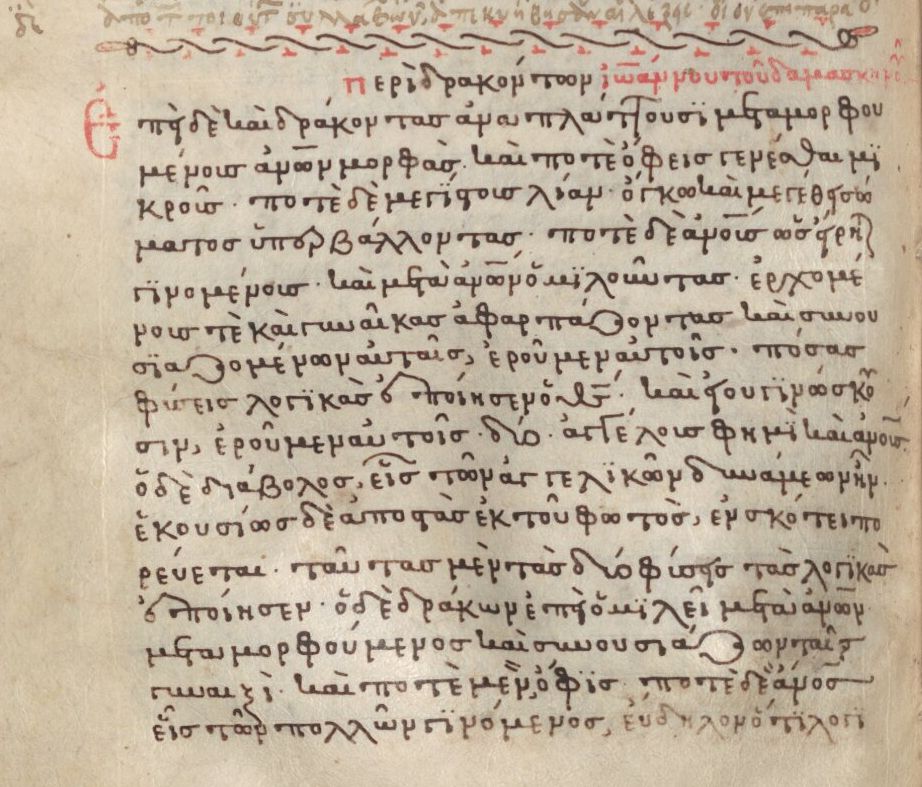 περὶ δρακόντων ἰωάννου τοῦ δαμασκηνοῦ
Ἐπὴ δὲ καὶ δράκοντας ἀναπλάττουσϊ μεταμορφου
μένοις ἀνῶν μορφὰς· καὶ ποτὲ ὄφεις γενέσθαι μϊ
κροῖς· ποτὲ δὲ μεγϊστοις λίαν· ὄγκω καὶ μεγέθη σώ
ματος ὑπερβάλλοντας· ποτὲ δὲ ἀνοῖς ὡς
γϊνομένοις· καὶ μετὰ ἀνῶν ὁμϊλοῦντας· ἐρχομέ
νοις τὲ καὶ γυναῖκας ἀφαρπάζοντας καὶ συνου
σϊαζομένων αὐταῖς, ἐροῦμεν αὐτοῖς· πόσας
φύσεις λογϊκὰς ἐποίησεν ὁ θς· καὶ ἢ οὐ γϊνώσκου
σιν, ἐροῦμεν αὐτοῖς· δύο· ἀγγέλοις φημὶ καὶ ἀνοῖς
ὁ δὲ διάβολος, εἷς τῶν ἀγγελϊκῶν δυνάμεων ἦν·
ἑκουσίως δὲ ἀποστὰς ἐκ τοῦ φωτὸς, ἐν σκότει πο
ρεύεται· ταύτας μὲν τὰς δύο φύσης τὰς λογϊκὰς
ἐποίησεν· ὁ δὲ δράκων ἐπὴ ὁμϊλεῖ μετὰ ἀνῶν
μεταμορφούμενος καὶ συνουσιάζων ταῖς
γυναιξὶ· καὶ ποτὲ μὲν ὄφϊς· ποτὲ δὲ ἄνος
εἷς τῶν πολλῶν γϊνόμενος, εὔδηλον ὅτϊ λογϊ